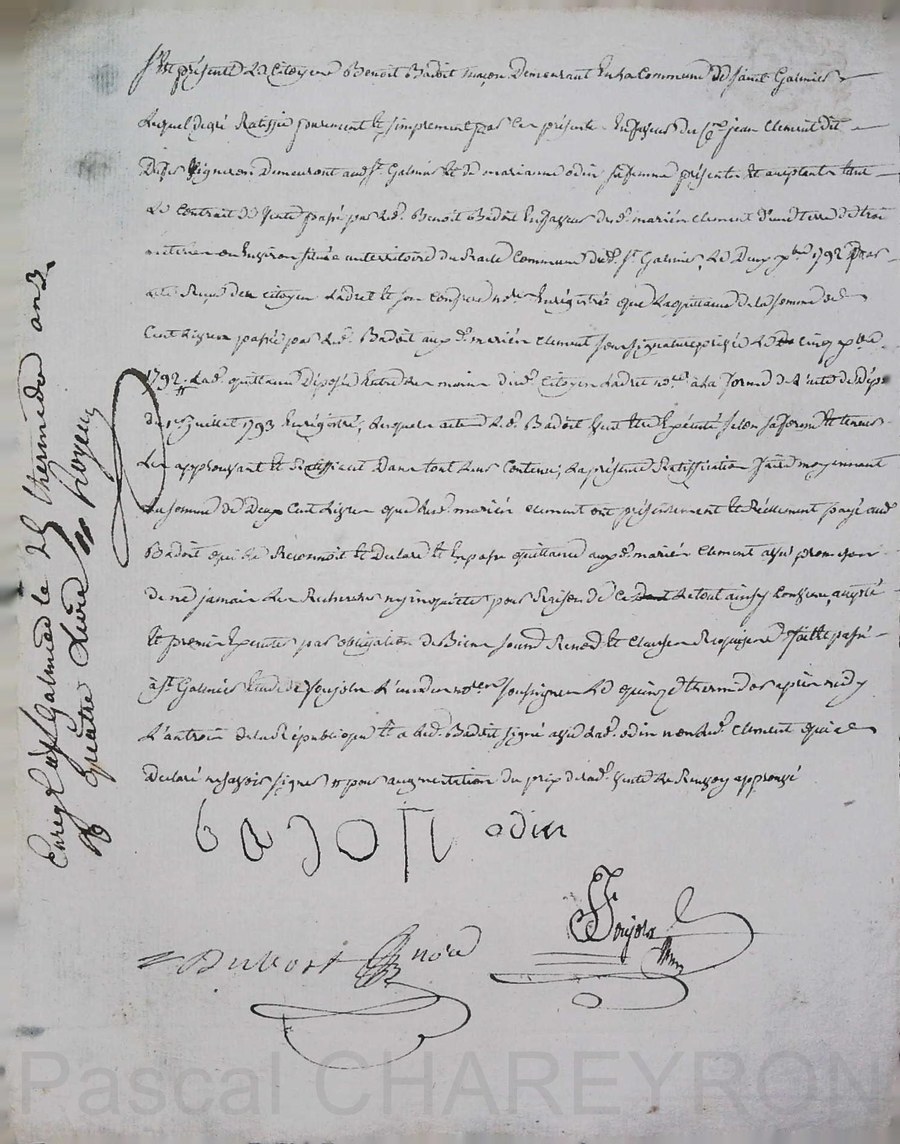 S'est présenté Le Citoyen Benoit Badoit maçon Demeurant En La Commune de Saint Galmier
Lequel de gré Ratiffie purement Et simplement par Ces présentes En faveur du Cen jean Clement dit
vigneron Demeurant aud. St. Galmier Et de marianne odin sa femme présents Et aceptants tant
Le Contrait de vente passé par Led. Benoit Badoit En faveur desd. mariés Clement d'une terre de
située au territoire du Commune dud. St. Galmier, Le Deux xbre 1792 par
acte Reçu des citoyen Ladret Et son Confrere nores Enregistré que La quittance de La somme de
Cent Livres passée par Led. Badoit auxd. mariés Clement sous signature privée Le cinq xbre
1792. Lad. quittance Déposée Entre Les mains dud. Citoyen Ladret nore. à La forme de L'acte de Dépo
du 1er juillet 1793 Enregistré, Lesquels actes Led. Badoit veut Etre Exécutés selon sa forme Et teneur
Les approuvant Et Ratiffiant Dans tout Leur Contenu, La présente Ratiffication faite moyennant
La somme de Deux Cent Livres que Lesd. mariés Clement ont présentement Et Réellement payé aud.
Badoit qui La Reconnoit Et Declare Et En passe quittance auxd. mariés Clement avec promesse
de ne jamais Les Rechercher ny inquietter pour Raison de ce Le tout ainsy Convenu, accepté
Et promis Executer par obligation de Biens soumd. Renond. Et Clauses Requises fait Et passé
à St. Galmier Etude de Soujola L'un des nores soussignés Le quinze thermidor après midy
L'an trois de La République Et a Led. Badoit signé avec Lad. odin non Led. Clement qui a
Declaré ne savoir signer # pour augmentation du prix de Lad. vente Le Renvoy approuvé
badoit odin
Soujola
Dubost nore
Enregt. à St. Galmier le 25 thermidor an 3.
R quatre Livre